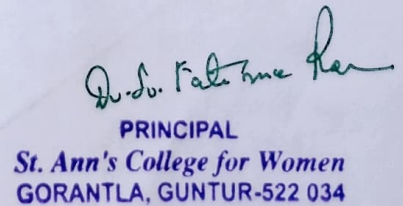 Dr. Sr. Fatima Ran
PRINCIPAL
St. Ann's College for Women
GORANTLA, GUNTUR-522 034